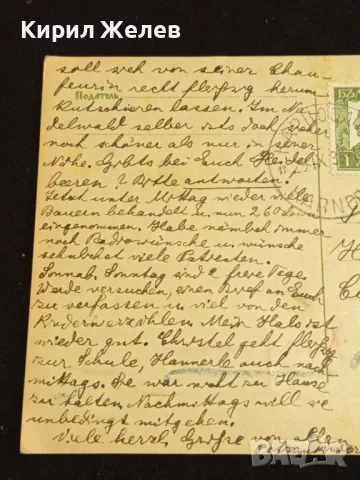 Кирил Желев
soll sich von seiner Chau-
feurin recht fleißig herum
Податель
kutschieren lassen. Im Na-
delwald selber ists doch weher
noch schöner als nur in seiner
Nähe. Gibts bei Euch Heidel
beeren? Bitte antworten!
Jetzt unter Mittag wieder viele
Bauern behandelt u. nun 260
eingenommen. Habe nämlich immer
noch u. wünsche
sehnlichst viele Patienten.
Sonnab. Sonntag sind 2 freie Tage.
Werde versuchen, einen Brief an Euch
zu verfassen u. viel von den
Kindern erzählen. Mein Hals ist
wieder gut. Christel geht fleißig
zur Schule, Hannerle auch nach
mittags. Sie war nicht zu Hause
zu halten. Nachmittags will sie
unbedingt mitgehen.
Viele herzl. Grüße von allen